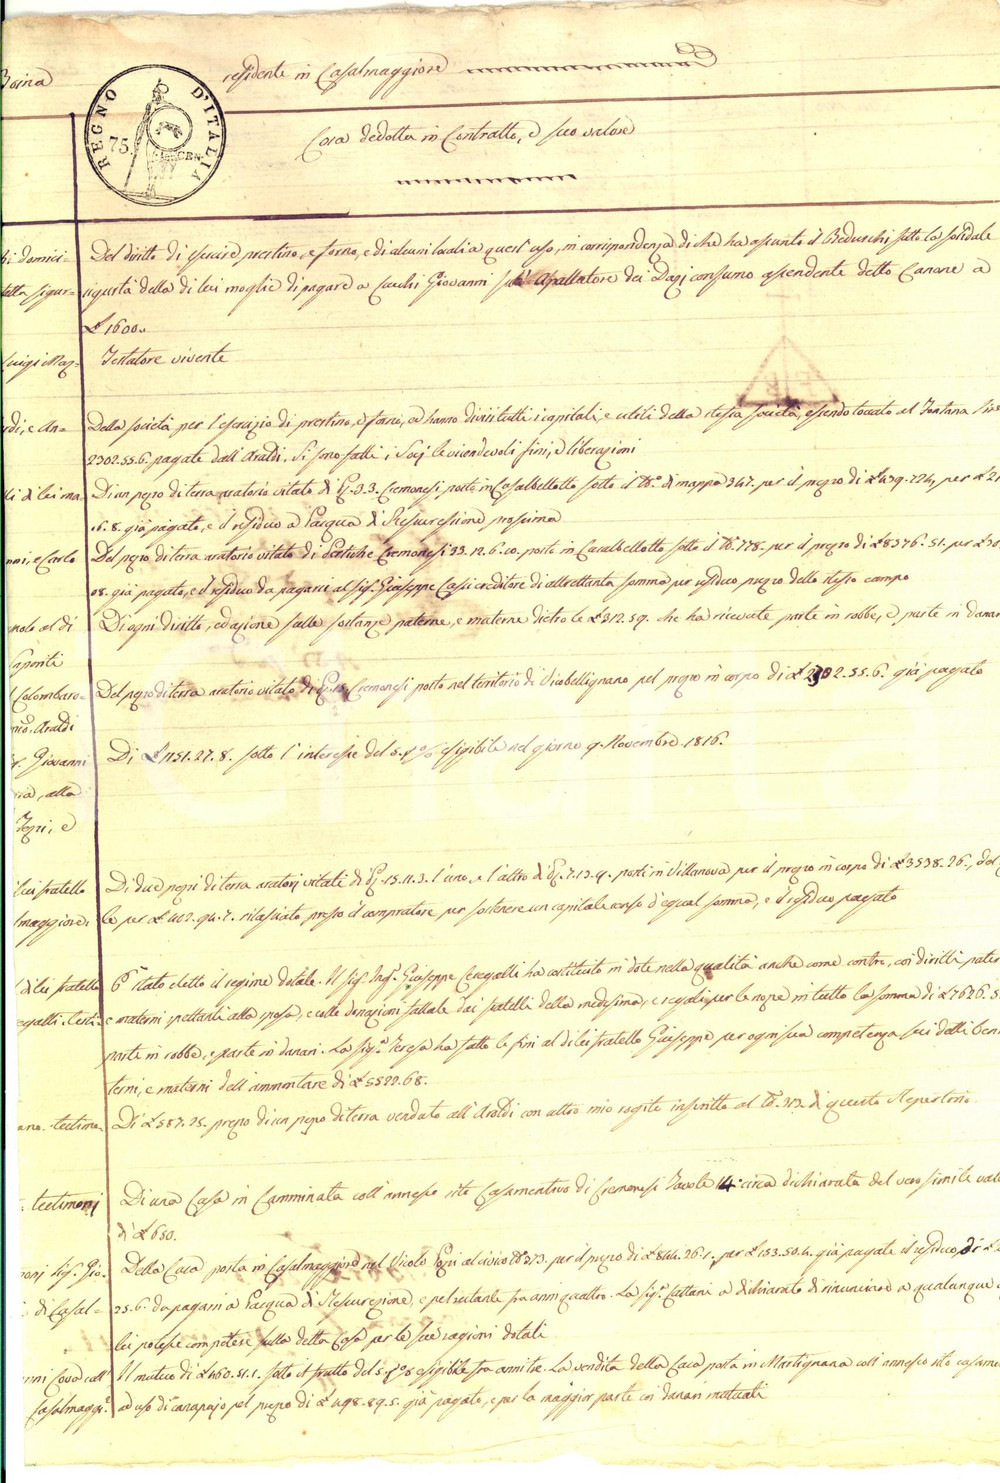 Boina residente in Casalmaggiore
REGNO D'ITALIA
75. CEN.
Cosa dedotta in Contratto, e suo valore
domici Del diritto di esercire prestino, e forno, e di alcuni locali a quest'uso, in corrispondenza di che ha assunto il Beduschi sotto la solidale
sigurtà della di lui moglie di pagare a Giovanni Appaltatore dei Dazj consumo ascendente detto Canone a
£ 1600.
Luigi Testatore vivente
e An= Della società per l'esercizio di prestino, e forno, ed hanno divisi tutti i capitali, e utili della stessa società, essendo toccato al Fontana
2302.55.6. pagate dall'Araldi. Si sono fatti i Socj le vicendevoli fini, e liberazioni
di lei ma Di un pezzo di terra aratorio vitato di Pj. 3.3. Cremonesi posto in Casalbellotto sotto il N.º di mappa 347. per il prezzo di £ 439.724, per £
16.8. già pagato, e il residuo a Pasqua di Resurezione prossima
e Carlo Del pezzo di terra aratorio vitato di Pertiche Cremonesi 33.12.6.10. posto in Casalbellotto sotto il N. 778. per il prezzo di £ 8376.51. per £
08. già pagato, e il residuo da pagarsi al Sig. Giuseppe creditore di altrettanta somma per residuo prezzo dello stesso campo
al di Di ogni diritto, ed azione sulle sostanze paterne, e materne dietro le £ 312.59. che ha ricevute parte in robbe, e parte in danari
Caponti
Colombaro Del pezzo di terra aratorio vitato di Cremonesi posto nel territorio di Vicobellignano pel prezzo in corpo di £ 2302.55.6. già pagato
Araldi
Giovanni Di £ 1151.27.8. sotto l'interesse del 5. p % esigibile nel giorno 9. Novembre 1816.
alla
e
lui fratello Di due pezzi di terra aratorj vitati di Pj. 15.11.3. l'uno, e l'altro di Pj. 7.13.9. posti in Villanova per il prezzo in corpo di £ 3538.26.,
lmaggiore, le per £ 402.94.7. rilasciato presso il compratore per sostenere un capitale censo d'egual somma, e il residuo pagato
di lei fratello È stato eletto il regime dotale. Il Sig. Ing. Giuseppe Ceregalli ha costituito in dote nella qualità anche come contro, coi diritti
egalli e materni spettanti alla sposa, e colle donazioni fattale dai fratelli della medesima, e regali per le nozze in tutto la somma di £ 7626.5
parte in robbe, e parte in danari. La Sig.ª Teresa ha fatto le fini al di lei fratello Giuseppe per ogni sua competenza sui detti beni
terni, e materni dell'ammontare di £ 5522.68.
testimo= Di £ 587.25. prezzo di un pezzo di terra venduto all'Araldi con altro mio rogito inscritto al N. 313. di questo Repertorio
testimonj Di una Casa in Camminata coll'annesso sito Casamentivo di Cremonesi Tavole 14 circa dichiarata del verosimile
di £ 650.
Sig. Gio= Della Casa posta in Casalmaggiore nel Vicolo Pozzi al civico N.º 373. per il prezzo di £ 844.26.1., per £ 153.50.4. già pagate il residuo, di £
di Casal= 25.6. da pagarsi a Pasqua di Resurezione, e pel restante fra anni quattro. La Sig.ª Cattani a dichiarato di rinunciare a qualunque
lei potesse competere sulla detta Casa per le sue ragioni dotali
Cova coll' Il mutuo di £ 460.51.1. sotto il frutto del 5. p % esigibile fra anni tre. La vendita della Casa posta in Martignana coll'annesso sito
Casalmagg.ᵉ ad uso di canapajo pel prezzo di £ 498.89.5. già pagato, e per la maggior parte coi danari mutuati